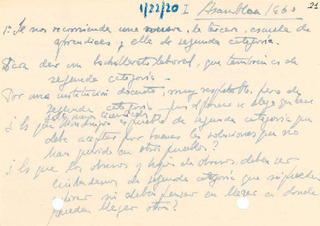 1/22/20 I Asamblea 1960 21
1º Se nos recomienda una nueva, la tercera, escuela de
aprendices y ella de segunda categoría.
Para dar un bachillerato laboral, que también es de
segunda categoría.
Por una institución docente, muy respetable, pero de
segunda categoría
¿Es que Mondragón es pueblo de segunda categoría que
debe aceptar por buenas las soluciones que no
han querido en otros pueblos?
¿Es que los obreros y hijos de obreros deben ser
ciudadanos de segunda categoría que ni pueden
ni deben pensar en llegar a donde
pueden llegar otros?